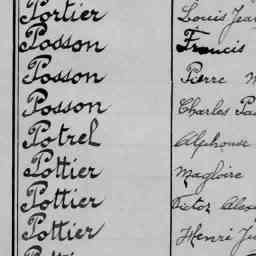 Portier Louis Jean
Posson Francis
Posson Pierre M
Posson Charles Pa
Potrel Alphonse
Pottier Magloire
Pottier Victor Alex
Pottier Henri Ju